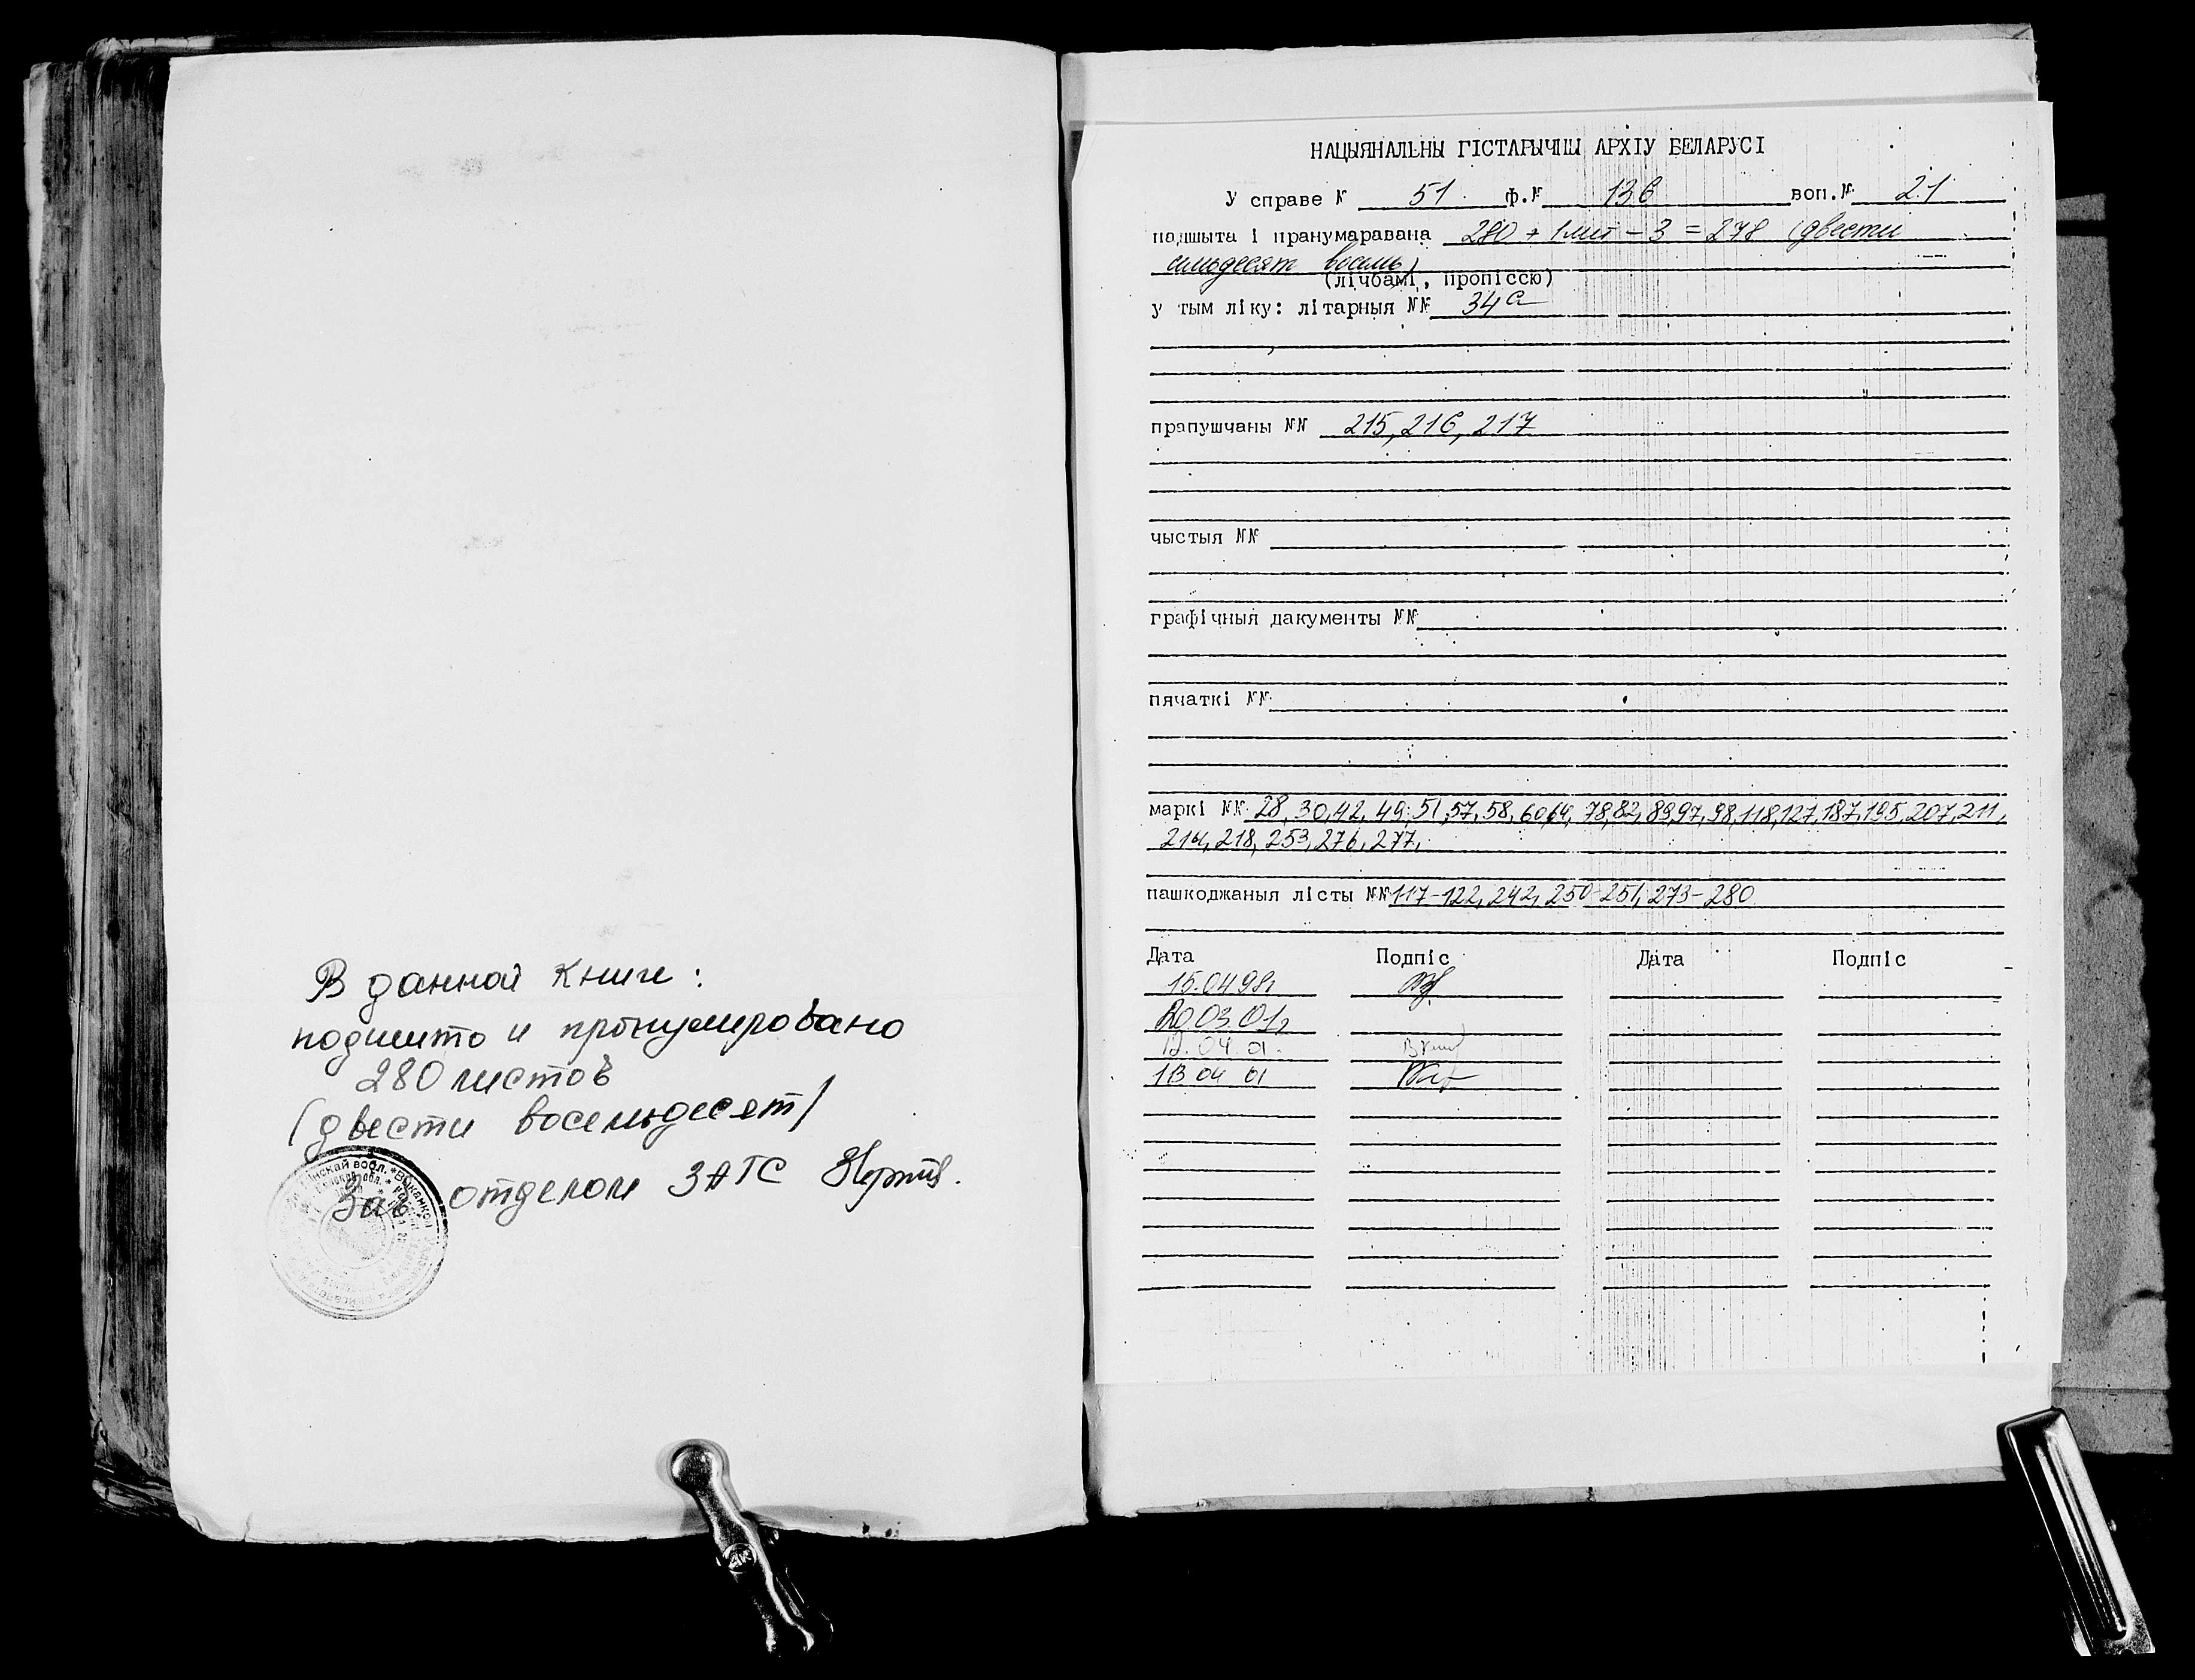 В данной книге:
подшито и пронумеровано
280 листов
(двести восемьдесят)
Зав отделом ЗАГС
НАЦЫЯНАЛЬНЫ ГІСТАРЫЧНЫ АРХІУ БЕЛАРУСІ
У справе № 51 ф.№ 136 воп.№ 21
падшыта і пранумаравана 280 + 1лит - 3 = 278 (двести
семьдесят восемь)
(лічбамі, пропіссю)
у тым ліку: літарныя №№ 34а
прапушчаны №№ 215, 216, 217
чыстыя №№
графічныя дакументы №№
пячаткі №№
маркі №№ 28, 30, 42, 49, 51, 57, 58, 60, 64, 78, 82, 89, 97, 98, 118, 127, 187, 195, 207, 211,
214, 218, 253, 276, 277,
пашкоджаныя лісты №№ 117-122, 242, 250-251, 273-280
Дата Подпіс Дата Подпіс
15.04.98г
20.03.01г
12.04.01.
13 04 01